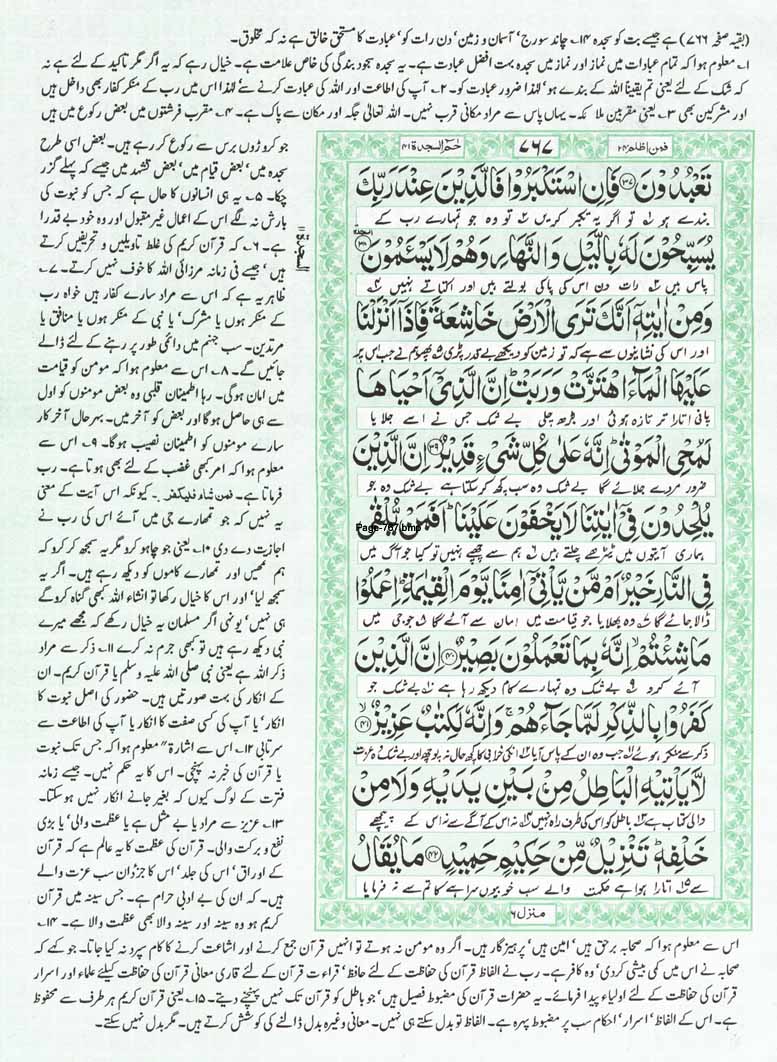 (بقیہ صفحہ ۷۶۶) ہے جیسے بت کو سجدہ ۱۴۔ چاند سورج' آسمان و زمین' دن رات کو' عبادت کا مستحق خالق ہے نہ کہ مخلوق۔
۱۔ معلوم ہوا کہ تمام عبادات میں نماز اور نماز میں سجدہ بہت افضل عبادت ہے۔ یہ سجدہ سجود بندگی کی خاص علامت ہے۔ خیال رہے کہ یہ اگر مگر تاکید کے لئے ہے نہ
کہ شک کے لئے یعنی تم یقیناً اللہ کے بندے ہو' لہٰذا ضرور عبادت کو۔ ۲۔ آپ کی اطاعت اور اللہ کی عبادت کرنے سے لہٰذا اس میں رب کے منکر کفار بھی داخل ہیں
اور مشرکین بھی ۳۔ یعنی مقربین ملائکہ۔ یہاں پاس سے مراد مکانی قرب نہیں۔ اللہ تعالیٰ جگہ اور مکان سے پاک ہے۔ ۴۔ مقرب فرشتوں میں بعض رکوع میں ہیں
فمن اظلم ۲۴
۷۶۷
حٰم السجدۃ ۴۱
تَعْبُدُوْنَ ﴿۳۷﴾ فَاِنِ اسْتَكْبَرُوْا فَالَّذِیْنَ عِنْدَ رَبِّكَ
بندے ہو تو اگر یہ تکبر کریں تو وہ جو تمہارے رب کے
یُسَبِّحُوْنَ لَهٗ بِالَّیْلِ وَ النَّهَارِ وَهُمْ لَا یَسْـَٔمُوْنَ ﴿۳۸﴾
پاس ہیں رات دن اس کی پاکی بولتے ہیں اور اکتاتے نہیں
وَمِنْ اٰیٰتِهٖۤ اَنَّكَ تَرَی الْاَرْضَ خَاشِعَةً فَاِذَاۤ اَنْزَلْنَا
اور اس کی نشانیوں سے ہے کہ تو زمین کو دیکھے بے قدر پڑی پھر ہم نے جب اس پر
عَلَیْهَا الْمَآءَ اهْتَزَّتْ وَرَبَتْ ؕ اِنَّ الَّذِیْۤ اَحْیَاهَا
پانی اتارا تر تازہ ہوئی اور بڑھ چلی بے شک جس نے اسے جلایا
لَمُحْیِ الْمَوْتٰی ؕ اِنَّهٗ عَلٰی كُلِّ شَیْءٍ قَدِیْرٌ ﴿۳۹﴾ اِنَّ الَّذِیْنَ
ضرور مردے جلائے گا بے شک وہ سب کچھ کر سکتا ہے بے شک وہ جو
یُلْحِدُوْنَ فِیْۤ اٰیٰتِنَا لَا یَخْفَوْنَ عَلَیْنَا ؕ اَفَمَنْ یُّلْقٰی
Page-767.bmp
ہماری آیتوں میں ٹیڑھے چلتے ہیں ہم سے چھپے نہیں تو کیا جو آگ میں
فِی النَّارِ خَیْرٌ اَمْ مَّنْ یَّاْتِیْۤ اٰمِنًا یَّوْمَ الْقِیٰمَةِ ؕ اِعْمَلُوْا
ڈالا جائے گا وہ بھلا یا جو قیامت میں امان سے آئے گا جو جی میں
مَا شِئْتُمْ ۙ اِنَّهٗ بِمَا تَعْمَلُوْنَ بَصِیْرٌ ﴿۴۰﴾ اِنَّ الَّذِیْنَ
آئے کرو بے شک وہ تمہارے کام دیکھ رہا ہے بے شک جو
كَفَرُوْا بِالذِّكْرِ لَمَّا جَآءَهُمْ ۚ وَاِنَّهٗ لَكِتٰبٌ عَزِیْزٌ ﴿۴۱﴾
ذکر سے منکر ہوئے جب وہ ان کے پاس آیا ان کی خرابی کا کچھ حال نہ پوچھ اور بے شک وہ عزت
لَّا یَاْتِیْهِ الْبَاطِلُ مِنْۢ بَیْنِ یَدَیْهِ وَلَا مِنْ
والی کتاب ہے باطل کو اس کی طرف راہ نہیں نہ اس کے آگے سے نہ اس کے پیچھے
خَلْفِهٖ ؕ تَنْزِیْلٌ مِّنْ حَكِیْمٍ حَمِیْدٍ ﴿۴۲﴾ مَا یُقَالُ
سے اتارا ہوا ہے حکمت والے سب خوبیوں سراہے کا تم سے نہ فرمایا
منزل ۶
السجدۃ ۱۱
جو کروڑوں برس سے رکوع کر رہے ہیں۔ بعض اسی طرح
سجدہ میں' بعض قیام میں' بعض تشہد میں جیسے کہ پہلے گزر
چکا۔ ۵۔ یہ ہی انسانوں کا حال ہے کہ جس کو نبوت کی
بارش نہ لگے اس کے اعمال غیر مقبول اور وہ خود بے قدرا
ہے۔ ۶۔ کہ قرآن کریم کی غلط تاویلیں و تحریفیں کرتے
ہیں' جیسے فی زمانہ مرزائی اللہ کا خوف نہیں کرتے۔ ۷۔
ظاہر یہ ہے کہ اس سے مراد سارے کفار ہیں خواہ رب
کے منکر ہوں یا مشرک' یا نبی کے منکر ہوں یا منافق یا
مرتدین۔ سب جہنم میں دائمی طور پر رہنے کے لئے ڈالے
جائیں گے۔ ۸۔ اس سے معلوم ہوا کہ مومن کو قیامت
میں امان ہوگی۔ رہا اطمینان قلبی وہ بعض مومنوں کو اول
سے ہی حاصل ہو گا اور بعض کو آخر میں۔ بہر حال آخر کار
سارے مومنوں کو اطمینان نصیب ہوگا۔ ۹۔ اس سے
معلوم ہوا کہ امر کبھی غضب کے لئے بھی ہوتا ہے۔ رب
فرماتا ہے۔ فمن شاء فلیکفر۔ کیونکہ اس آیت کے معنی
یہ نہیں کہ جو تمہارے جی میں آئے اس کی رب نے
اجازت دے دی ۱۰۔ یعنی جو چاہو کرو مگر یہ سمجھ کر کرو کہ
ہم تمہیں اور تمہارے کاموں کو دیکھ رہے ہیں۔ اگر یہ
سمجھ لیا' اور اس کا خیال رکھا تو انشاء اللہ کبھی گناہ کرو گے
ہی نہیں' یونہی اگر مسلمان یہ خیال رکھے کہ مجھے میرے
نبی دیکھ رہے ہیں تو کبھی جرم نہ کرے ۱۱۔ ذکر سے مراد
ذکر اللہ ہے یعنی نبی صلی اللہ علیہ وسلم یا قرآن کریم۔ ان
کے انکار کی بہت صورتیں ہیں۔ حضور کی اصل نبوت کا
انکار' یا آپ کی کسی صفت کا انکار یا آپ کی اطاعت سے
سرتابی ۱۲۔ اس سے اشارۃً معلوم ہوا کہ جس تک نبوت
یا قرآن کی خبر نہ پہنچی۔ اس کا یہ حکم نہیں۔ جیسے زمانہ
فترت کے لوگ کیوں کہ بغیر جانے انکار نہیں ہو سکتا۔
۱۳۔ عزیز سے مراد یا بے مثل ہے یا عظمت والی' یا بڑی
نفع و برکت والی۔ قرآن کی عظمت کا یہ عالم ہے کہ قرآن
کے اوراق' اس کی جلد' اس کا جزدان سب عزت والے
ہیں۔ کہ ان کی بے ادبی حرام ہے۔ جس سینہ میں قرآن
کریم ہو وہ سینہ اور سینہ والا بھی عظمت والا ہے۔ ۱۴۔
اس سے معلوم ہوا کہ صحابہ برحق ہیں' امین ہیں' پرہیزگار ہیں۔ اگر وہ مومن نہ ہوتے تو انہیں قرآن جمع کرنے اور اشاعت کرنے کا کام سپرد نہ کیا جاتا۔ جو کہے کہ
صحابہ نے اس میں کمی بیشی کر دی' وہ کافر ہے۔ رب نے الفاظ قرآن کی حفاظت کے لئے حافظ' قراءت قرآن کے لئے قاری معانی قرآن کی حفاظت کیلئے علماء اور اسرار
قرآن کی حفاظت کے لئے اولیاء پیدا فرمائے۔ یہ حضرات قرآن کی مضبوط فصیل ہیں' جو باطل کو قرآن تک نہیں پہنچنے دیتے۔ ۱۵۔ یعنی قرآن کریم ہر طرف سے محفوظ
ہے۔ اس کے الفاظ' اسرار' احکام سب پر مضبوط پہرہ ہے۔ الفاظ تو بدل سکتے ہی نہیں۔ معانی وغیرہ بدل ڈالنے کی کوشش کرتے ہیں۔ مگر بدل نہیں سکتے۔